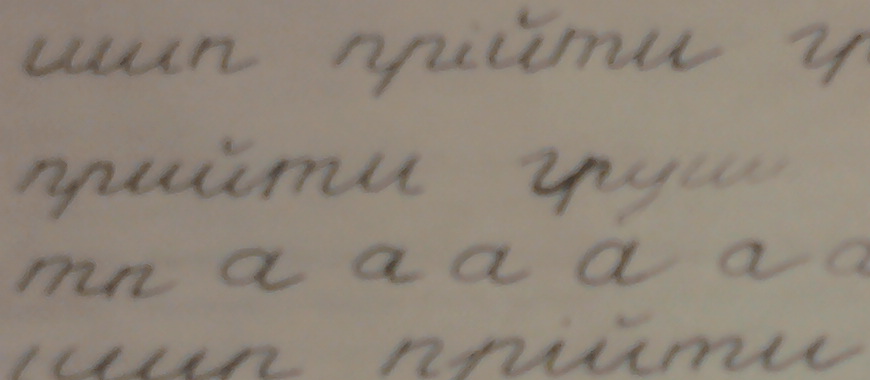 шип прійти гр
прийти груш
тп а а а а а а
шип прійти